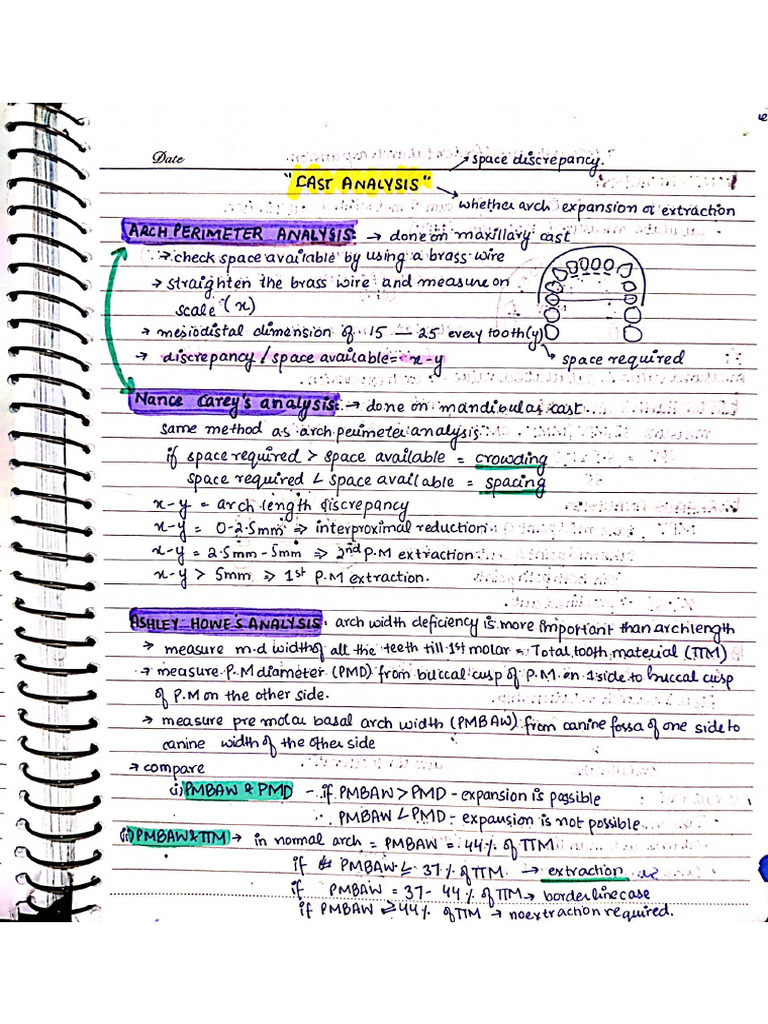 Date
→ space discrepancy.
"CAST ANALYSIS"
→ whether arch expansion or extraction
ARCH PERIMETER ANALYSIS: → done on maxillary cast
→ check space available by using a brass wire
→ straighten the brass wire and measure on
scale (x)
→ mesiodistal dimension of 15 — 25 every tooth (y)
→ space required
→ discrepancy / space available = x-y
Nance Carey's analysis: → done on mandibular cast
same method as arch perimeter analysis
if space required > space available = crowding
space required < space available = spacing
x-y = arch length discrepancy
x-y = 0-2.5mm ⇒ interproximal reduction
x-y = 2.5mm - 5mm ⇒ 2nd P.M extraction
x-y > 5mm ⇒ 1st P.M extraction.
ASHLEY HOWE'S ANALYSIS: arch width deficiency is more important than arch length
→ measure m.d width of all the teeth till 1st molar = Total tooth material (TTM)
→ measure P.M diameter (PMD) from buccal cusp of P.M. on 1 side to buccal cusp
of P.M on the other side.
→ measure premolar basal arch width (PMBAW) from canine fossa of one side to
canine width of the other side
→ compare
(i) PMBAW & PMD - if PMBAW > PMD - expansion is possible
PMBAW < PMD - expansion is not possible
(ii) PMBAW & TTM → in normal arch = PMBAW = 44% of TTM
if PMBAW < 37% of TTM → extraction
if PMBAW = 37 - 44% of TTM → borderline case
if PMBAW ≥ 44% of TTM → no extraction required.